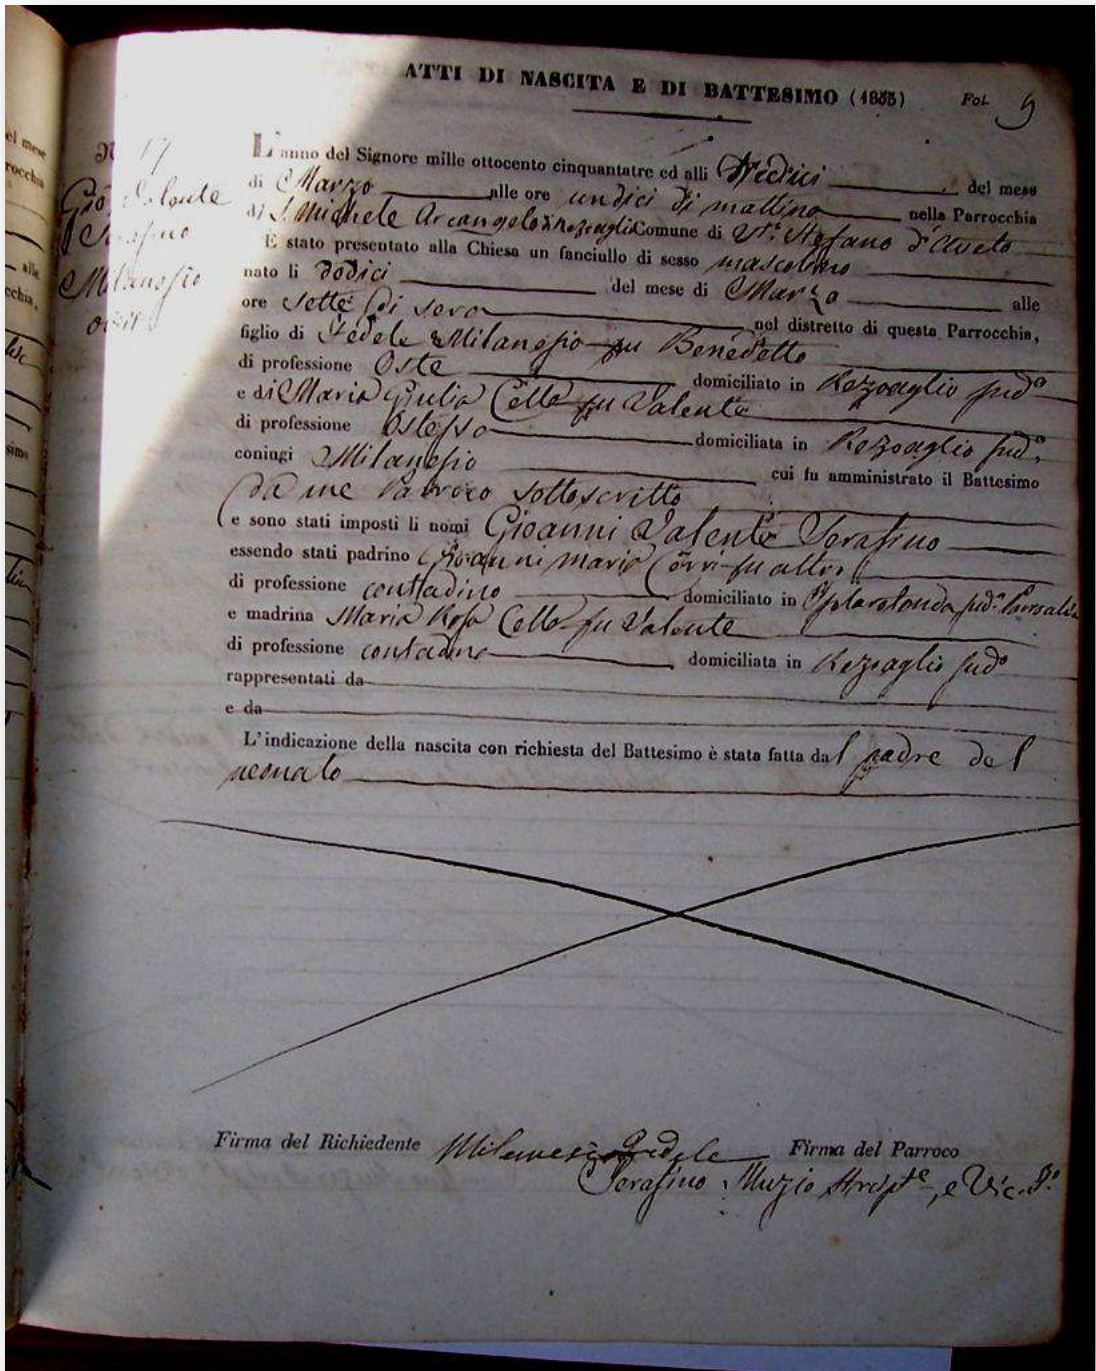 ATTI DI NASCITA E DI BATTESIMO (1853) Fol. 9
N 17
L'anno del Signore mille ottocento cinquantatre ed alli Tredici del mese
di Marzo alle ore undici di mattino nella Parrocchia
di S. Michele Arcangelo di Rezoaglio Comune di Sto. Stefano d'Aveto
È stato presentato alla Chiesa un fanciullo di sesso mascolino
nato li dodici del mese di Marzo alle
ore sette di sera nel distretto di questa Parrocchia,
figlio di Fedele Milanesio fu Benedetto
di professione Oste domiciliato in Rezoaglio sudo
e di Maria Giulia Cella fu Valente
di professione Ostessa domiciliata in Rezoaglio sudo
coniugi Milanesio cui fu amministrato il Battesimo
da me Parroco sottoscritto
e sono stati imposti li nomi Gioanni Valente Serafino
essendo stati padrino Gioanni Maria fu
di professione contadino domiciliato in
e madrina Maria Rosa Cella fu Valente
di professione contadina domiciliata in Rezoaglio sudo
rappresentati da
e da
L'indicazione della nascita con richiesta del Battesimo è stata fatta dal padre del
neonato
Gio Valente
Serafino
Milanesio
Firma del Richiedente Milanesio Fedele Firma del Parroco
Serafino Muzio Arcipte, e Vic. Fo